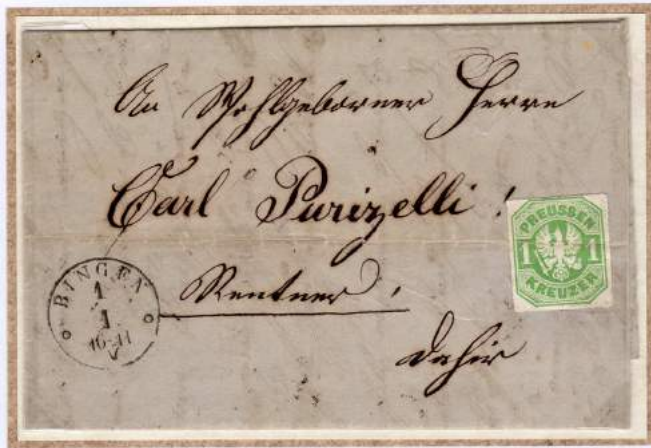 An Wohlgeborner Herrn
Carl Purizelli !
Rentner,
dahir
PREUSSEN
1 1
KREUZER
BINGEN
1
1
10-11